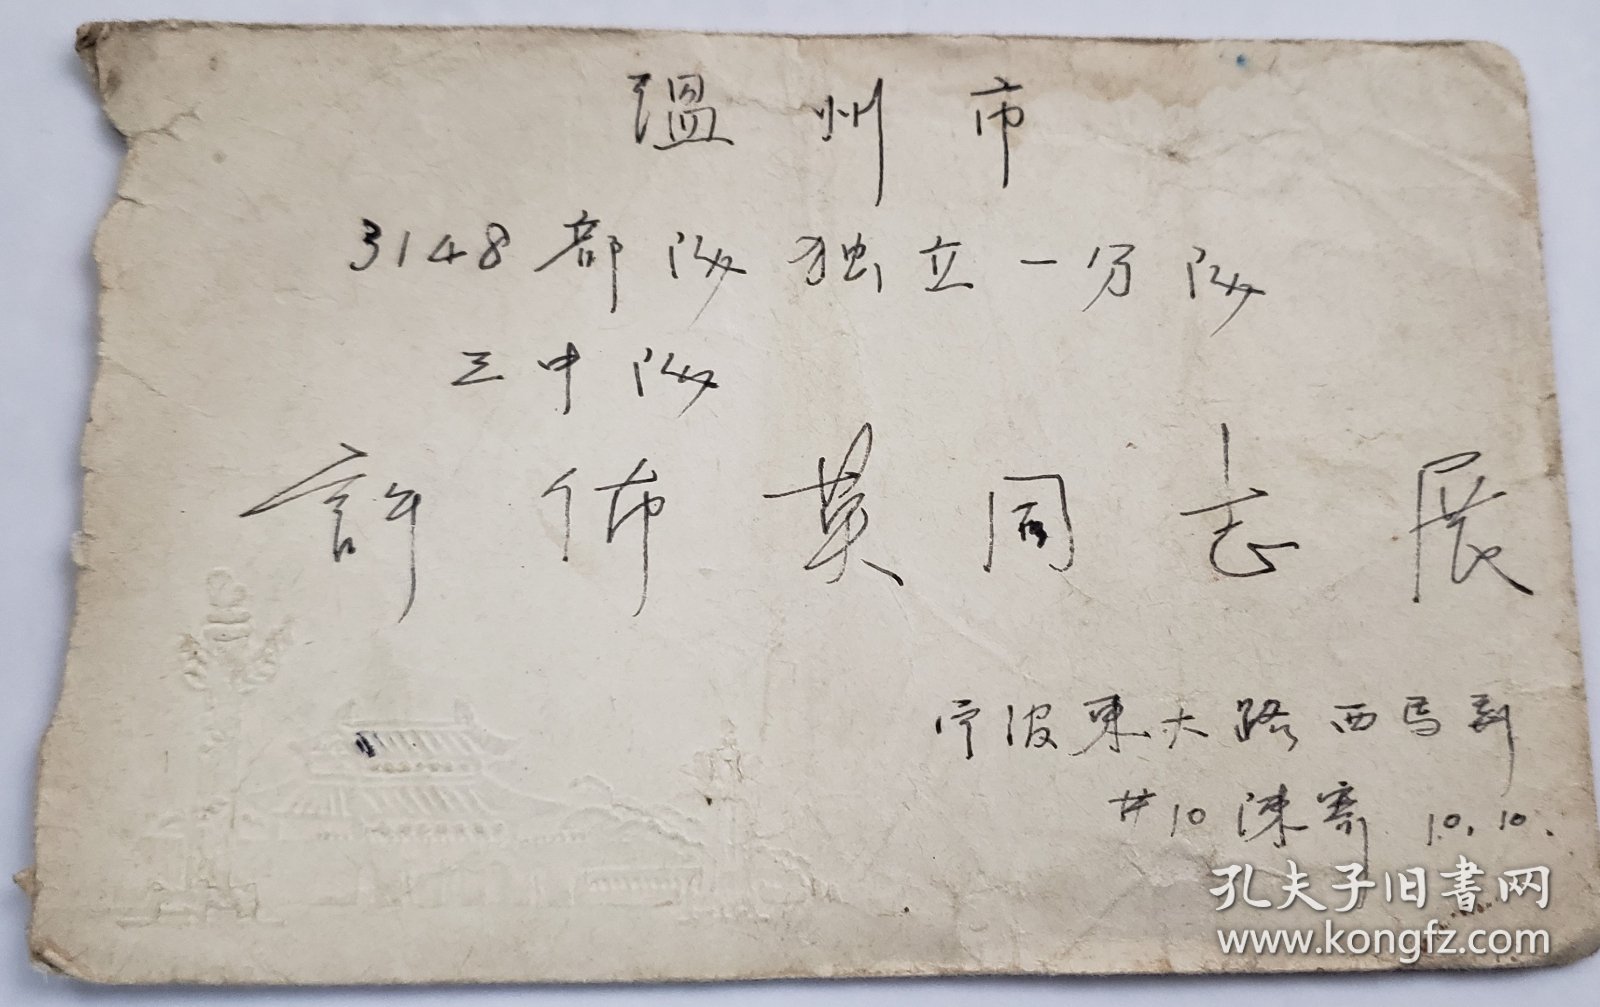 温州市
3148部队独立一分队
三中队
許佈英同志展
宁波東大路西马弄
#10 陳寄 10.10.
孔夫子旧書网
www.kongfz.com